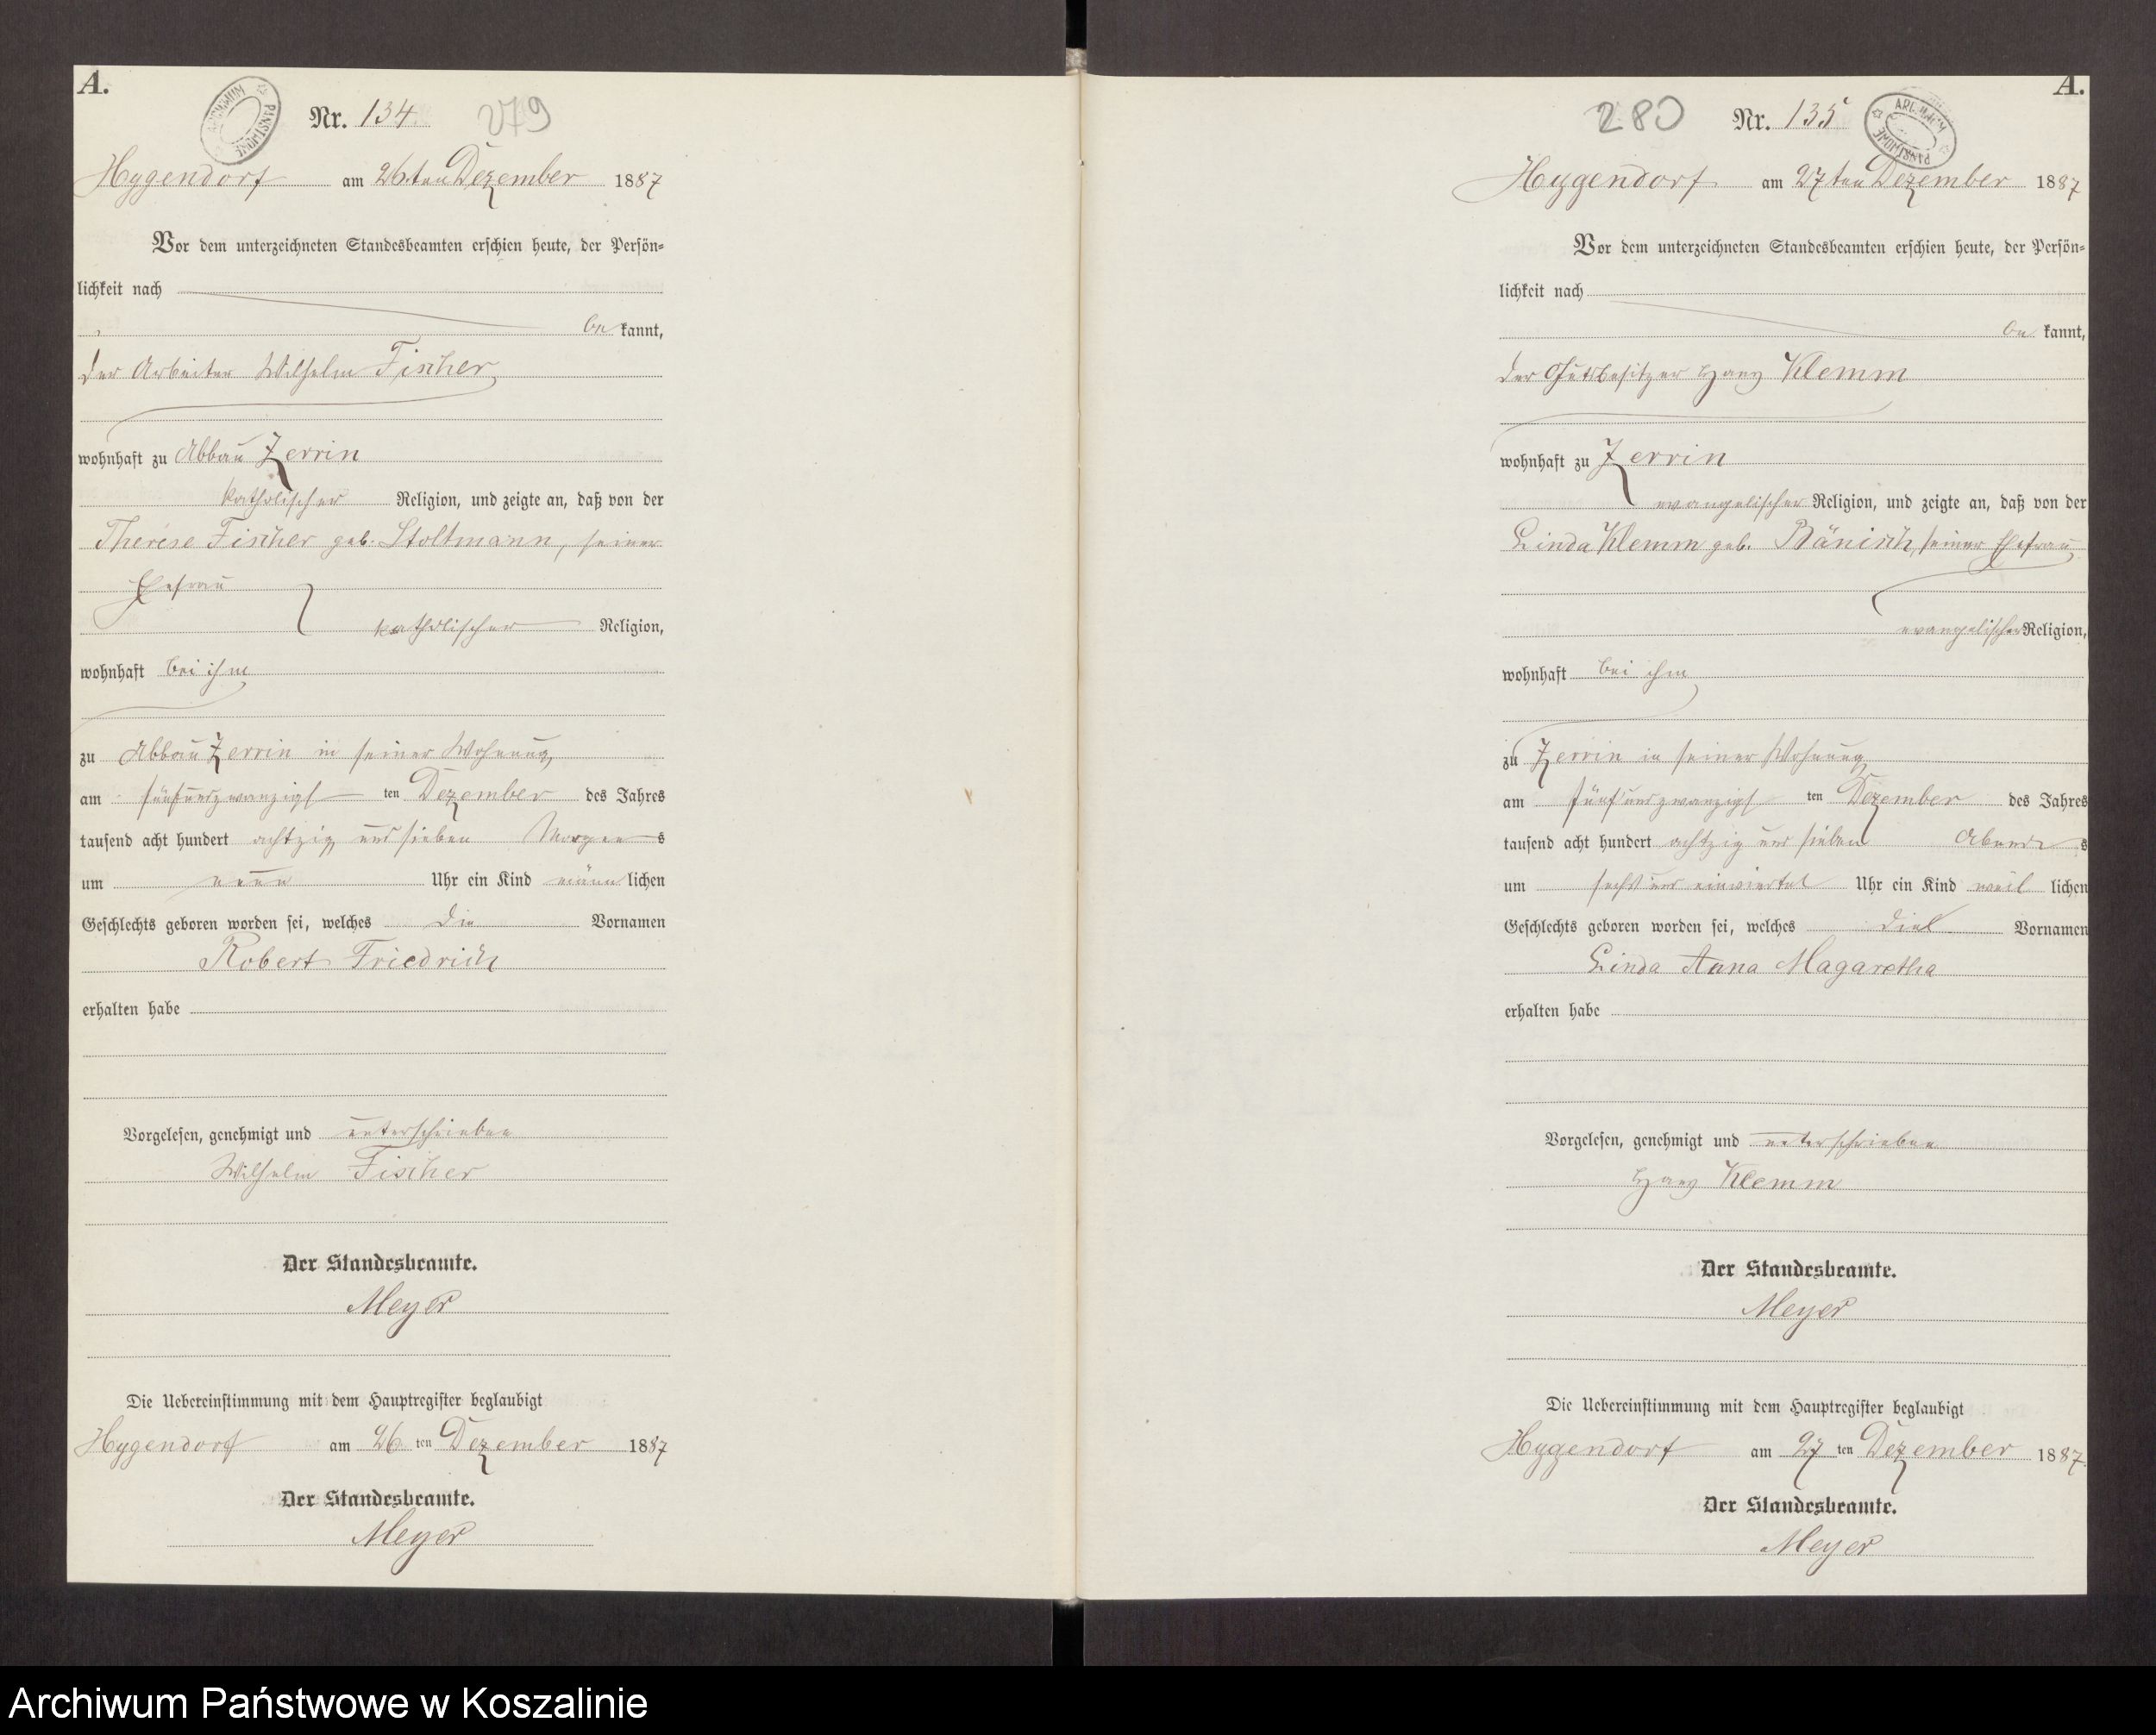 A.
ARCHIWUM PAŃSTWOWE
Nr. 134.
279
Hygendorf am 26ten Dezember 1887
Vor dem unterzeichneten Standesbeamten erschien heute, der Persön-
lichkeit nach
be kannt,
der Arbeiter Wilhelm Fischer
wohnhaft zu Abbau Zerrin
katholischer Religion, und zeigte an, daß von der
Therese Fischer geb. Stoltmann, seiner
Ehefrau
katholischer Religion,
wohnhaft bei ihm
zu Abbau Zerrin in seiner Wohnung,
am fünfundzwanzigs ten Dezember des Jahres
tausend acht hundert achtzig und sieben Morgen s
um neun Uhr ein Kind männ lichen
Geschlechts geboren worden sei, welches die Vornamen
Robert Friedrich
erhalten habe
Vorgelesen, genehmigt und unterschrieben
Wilhelm Fischer
Der Standesbeamte.
Meyer
Die Uebereinstimmung mit dem Hauptregister beglaubigt
Hygendorf am 26 ten Dezember 1887
Der Standesbeamte.
Meyer
A.
280
Nr. 135
ARCHIWUM PAŃSTWOWE
Hygendorf am 27ten Dezember 1887
Vor dem unterzeichneten Standesbeamten erschien heute, der Persön-
lichkeit nach
be kannt,
der Gutsbesitzer Hans Klemm
wohnhaft zu Zerrin
evangelischer Religion, und zeigte an, daß von der
Linda Klemm geb. Bänisch, seiner Ehefrau
evangelischer Religion,
wohnhaft bei ihm
zu Zerrin in seiner Wohnung
am fünfundzwanzigs ten Dezember des Jahres
tausend acht hundert achtzig und sieben Abend s
um sechs und einviertel Uhr ein Kind weib lichen
Geschlechts geboren worden sei, welches die Vornamen
Linda Anna Magaretha
erhalten habe
Vorgelesen, genehmigt und unterschrieben
Hans Klemm
Der Standesbeamte.
Meyer
Die Uebereinstimmung mit dem Hauptregister beglaubigt
Hygendorf am 27 ten Dezember 1887.
Der Standesbeamte.
Meyer
Archiwum Państwowe w Koszalinie